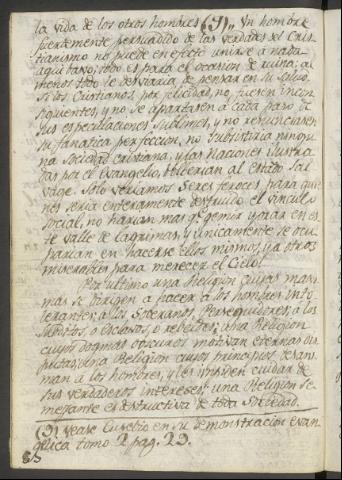 la vida de los otros hombres (9)„ Un hombre
fuertemente persuadido de las verdades del Cris-
tianismo no puede en efecto unirse á nada
aqui bajo; todo es para el ocasion de ruina; al
menos todo le desviaria de pensar en su salud.
Si los Cristianos, por felicidad, no fuesen incon
siguientes, y no se apartasen á cada paso de
sus especulaciones sublimes, y no renunciasen
su fanatica perfeccion, no subsistiria ningu
na sociedad cristiana, y las Naciones ilustra
das por el evangelio, bolverian al estado sal
vage. Solo veriamos seres feroces, para quie
nes seria enteramente destruido el vinculo
social, no harian mas q.e gemir y orar en es
te valle de lagrimas, y unicamente se ocu
parian en hacerse ellos mismos, y á otros
miserables para merecer el Cielo.
Por ultimo una Religion cuyas maxi
mas se dirigen á hacer á los hombres into
lerantes; á los Soberanos, Perseguidores; á los
Subditos, ó Esclavos, ó rebeldes; una Religion
cuyos dogmas obscuros motivan eternas dis
putas; una Religion cuyos principios desani
man á los hombres, y les impiden cuidar de
sus verdaderos intereses; una Religion se-
mejante es destructiva de toda Sociedad.
(9) Vease Eusebio en su demonstracion evan
gelica tomo 2 pag. 29.